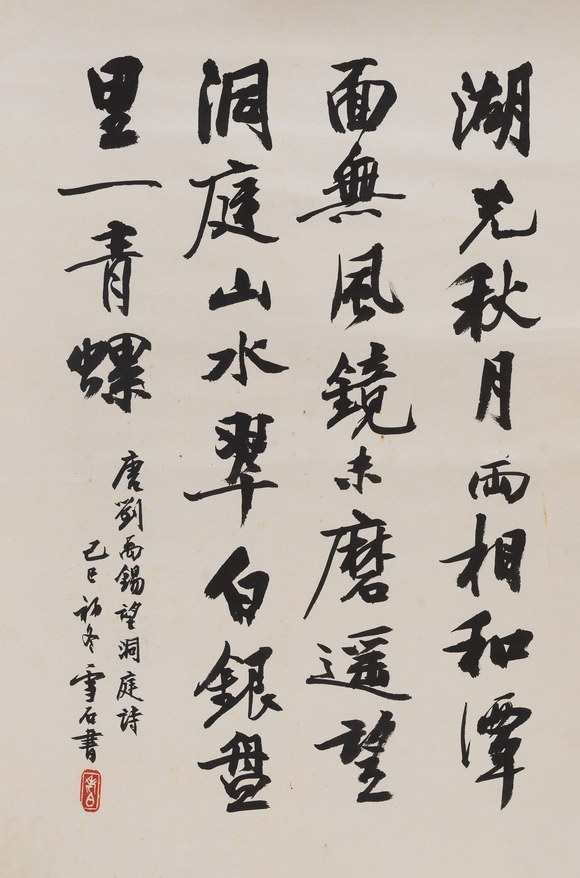 湖光秋月兩相和潭
面無風鏡未磨遥望
洞庭山水翠白銀盘
里一青螺
唐劉禹錫望洞庭詩
己巳初冬雪石書